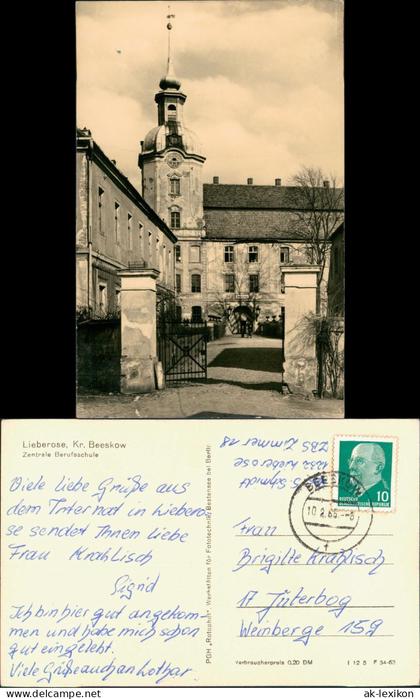 Lieberose, Kr. Beeskow
Zentrale Berufsschule
Viele liebe Grüße aus
dem Internat in Liebero-
se sendet Ihnen Liebe
Frau Krahlisch
Sigrid
Ich bin hier gut angekom-
men und habe mich schon
gut eingelebt.
Viele Grüße auch an Lothar.
PGH „Rotophot“, Werkstätten für Fototechnik, Bestensee bei Berlin
S. Schmidt
Lieberose
ZBS Zimmer 18
BEESKOW
DEUTSCHE
DEMOKRATISCHE REPUBLIK
10
Frau
Brigitte Krahlisch
17 Jüterbog
Weinberge 15g
Verbraucherpreis 0,20 DM
I 12 8 F 34-63
ak-lexikon.com